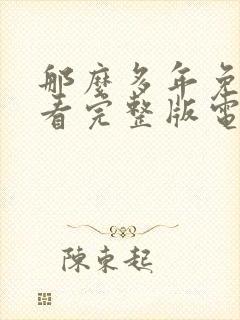 那麼多年免
看完整版電
陳東起